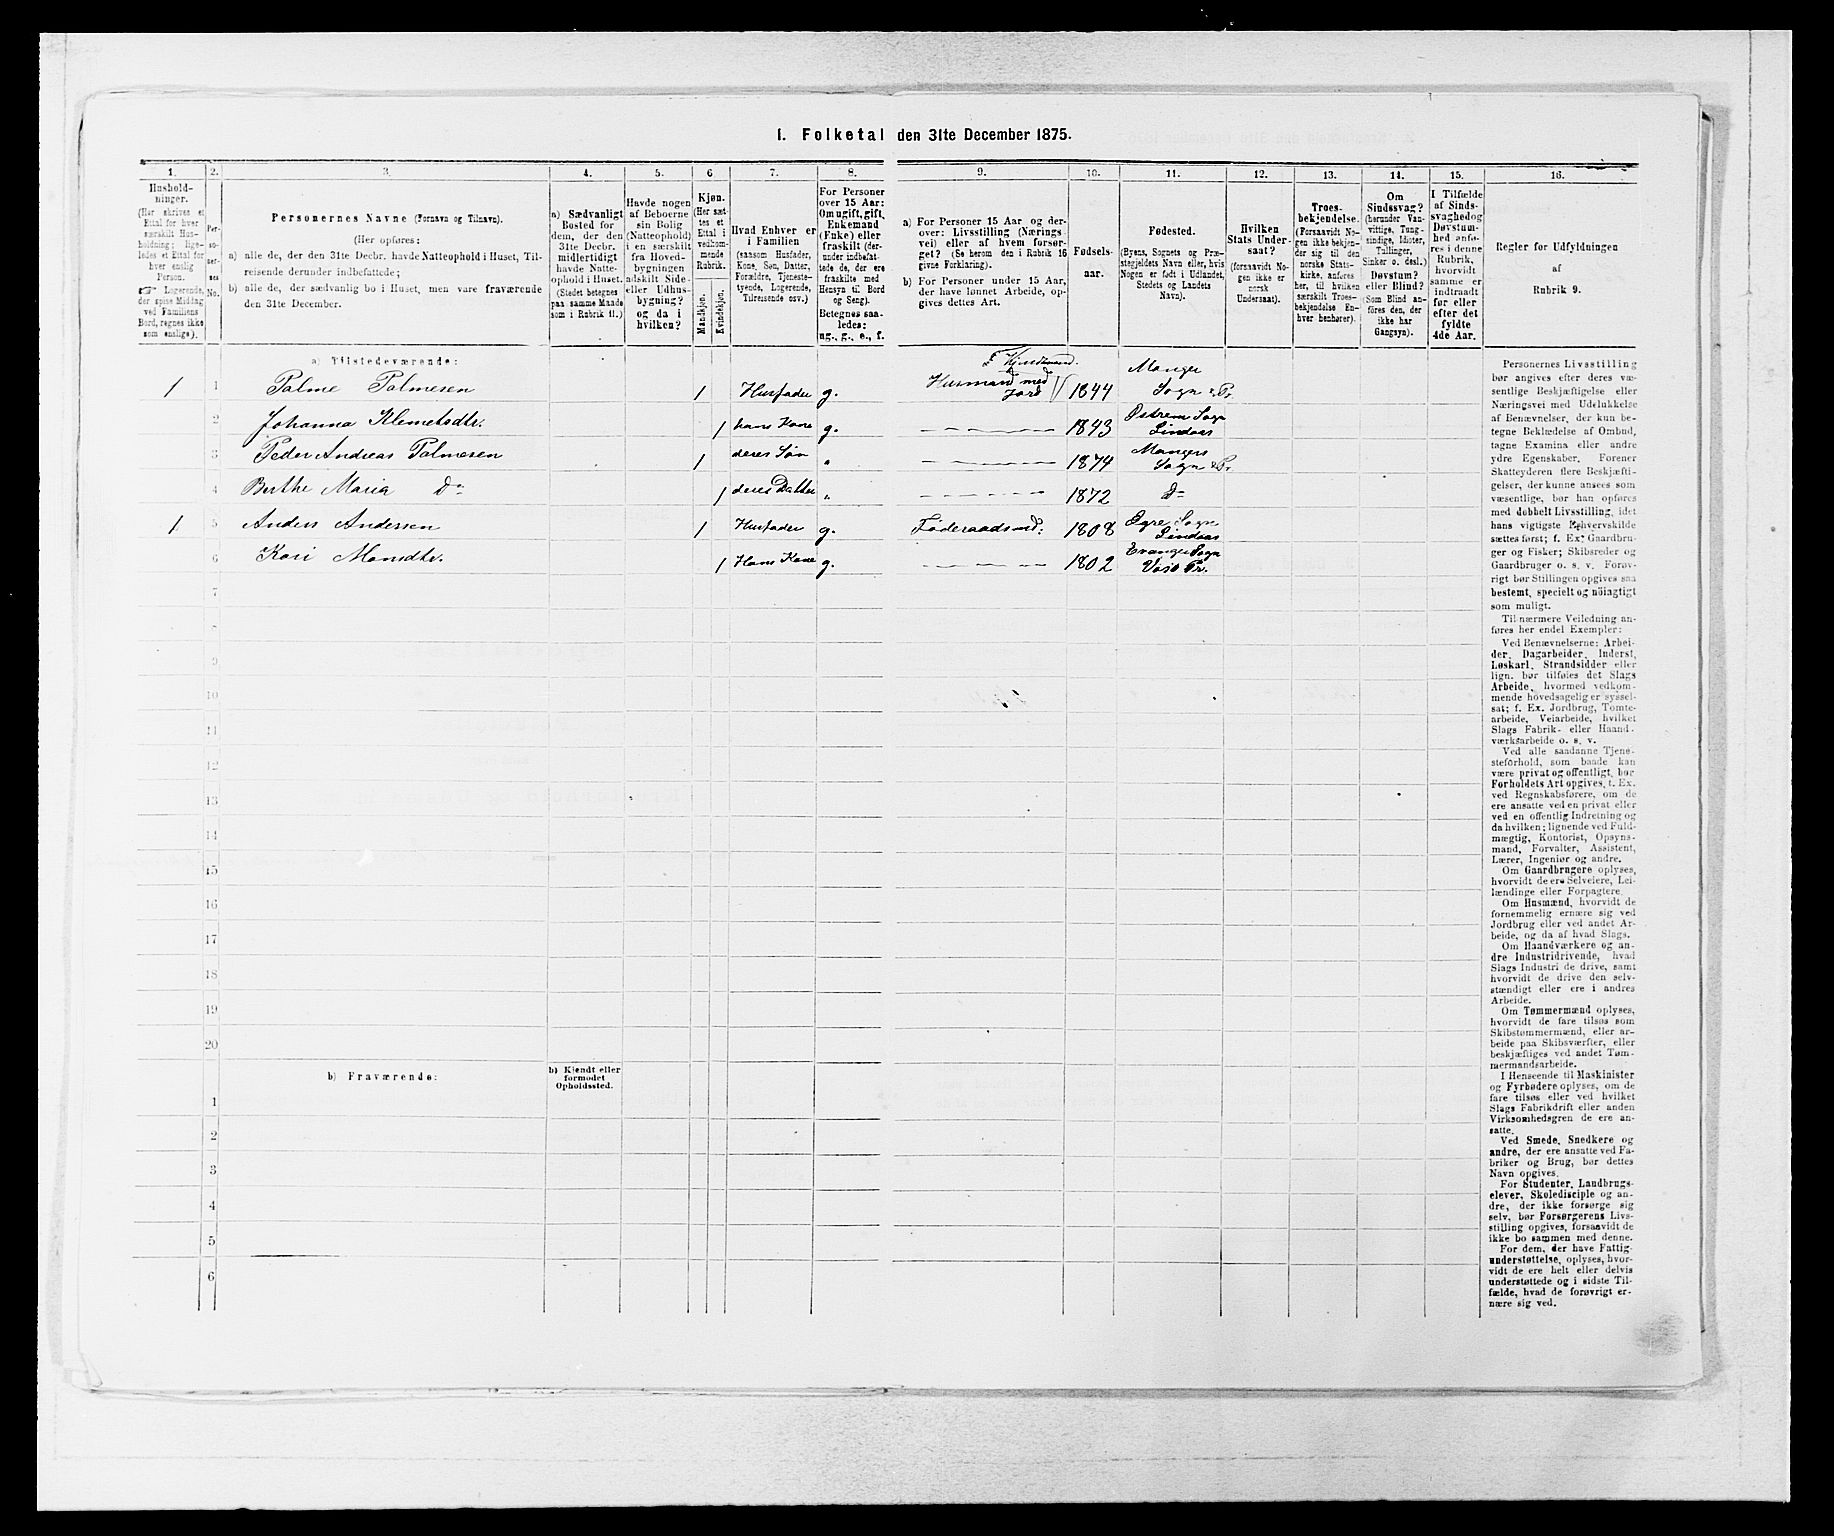 I. Folketal den 31te December 1875.
1. 2. 3. 4. 5. 6. 7. 8. 9. 10. 11. 12. 13. 14. 15. 16.
Hushold-
ninger.
(Her skrives et
Ettal for hver
særskilt Hus-
holdning; lige-
ledes et Ettal for
hver enslig
Person.
☞ Logerende,
der spise Middag
ved Familiens
Bord, regnes ikke
som enslige).
Per-
so-
ner-
nes
No.
Personernes Navne (Fornavn og Tilnavn).
(Her opføres:
a) alle de, der den 31te Decbr. havde Natteophold i Huset, Til-
reisende derunder indbefattede;
b) alle de, der sædvanlig bo i Huset, men vare fraværende
den 31te December.
a) Sædvanligt
Bosted for
dem, der den
31te Decbr.
midlertidigt
havde Natte-
ophold i Huset.
(Stedet betegnes
paa samme Maade
som i Rubrik 11.)
Havde nogen
af Beboerne
sin Bolig
(Natteophold)
i en særskilt
fra Hoved-
bygningen
adskilt Side-
eller Udhus-
bygning?
og da i
hvilken?
Kjøn.
(Her sæt-
tes et
Ettal i
vedkom-
mende
Rubrik.
Mandkjøn.
Kvindekjøn.
Hvad Enhver er
i Familien
(saasom Husfader,
Kone, Søn, Datter,
Forældre, Tjeneste-
tyende, Logerende,
Tilreisende osv.)
For Personer
over 15 Aar:
Om ugift, gift,
Enkemand
(Enke) eller
fraskilt (der-
under indbefat-
tede de, der ere
fraskilte med
Hensyn til Bord
og Seng).
Betegnes saa-
ledes:
ug., g., e., f.
a) For Personer 15 Aar og der-
over: Livsstilling (Nærings-
vei) eller af hvem forsør-
get? (Se herom den i Rubrik 16
givne Forklaring).
b) For Personer under 15 Aar,
der have lønnet Arbeide, op-
gives dettes Art.
Fødsels-
aar.
Fødested.
(Byens, Sognets og Præ-
stegjeldets Navn eller, hvis
Nogen er født i Udlandet,
Stedets og Landets
Navn).
Hvilken
Stats Under-
saat?
(forsaavidt No-
gen ikke er
norsk
Undersaat).
Troes-
bekjendelse.
(Forsaavidt No-
gen ikke bekjen-
der sig til den
norske Stats-
kirke, anføres
her, til hvilken
særskilt Troes-
bekjendelse En-
hver henhører).
Om
Sindssvag?
(herunder Van-
vittige, Tung-
sindige, Idioter,
Tullinger,
Sinker o. desl.)
Døvstum?
eller Blind?
(Som Blind an-
føres den, der
ikke har
Gangsyn).
I Tilfælde
af Sinds-
svaghed og
Døvstum-
hed anfø-
res i denne
Rubrik,
hvorvidt
samme er
indtraadt
før eller
efter det
fyldte
4de Aar.
Regler for Udfyldningen
af
Rubrik 9.
a) Tilstedeværende:
1 1 Palme Palmesen 1 Husfader g. Husmand med Jord 1844 Manger Sogn & Pr.
2 Johanna Klemetsdtr. 1 hans Kone g. 1843 Østrem Sogn Lindaas
3 Peder Andreas Palmesen 1 deres Søn " 1874 Mangers Sogn & Pr.
4 Berthe Maria Do 1 deres Datter " 1872 Do
1 5 Anders Andersen 1 Husfader g. Føderaadsmd: 1808 Sogn Lindaas
6 Kari Monsdtr. 1 Hans Kone g. 1802 Evanger Sogn Voss Pr.
7
9
10
11
12
13
14
15
16
17
18
19
20
b) Fraværende:
b) Kjendt eller
formodet
Opholdssted.
1
2
3
4
5
6
Personernes Livsstilling
bør angives efter deres væ-
sentlige Beskjæftigelse eller
Næringsvei med Udelukkelse
af Benævnelser, der kun be-
tegne Beklædelse af Ombud,
tagne Examina eller andre
ydre Egenskaber. Forener
Skatteyderen flere Beskjæfti-
gelser, der kunne ansees som
væsentlige, bør han opføres
med dobbelt Livsstilling, idet
hans vigtigste Erhvervskilde
sættes først; f. Ex. Gaardbru-
ger og Fisker; Skibsreder og
Gaardbruger o. s. v. Forøv-
rigt bør Stillingen opgives saa
bestemt, specielt og nöiagtigt
som muligt.
Til nærmere Veiledning an-
føres her endel Exempler:
Ved Benævnelserne: Arbei-
der, Dagarbeider, Inderst,
Løskarl, Strandsidder eller
lign. bør tilføies det Slags
Arbeide, hvormed vedkom-
mende hovedsagelig er syssel-
sat; f. Ex. Jordbrug, Tomte-
arbeide, Veiarbeide, hvilket
Slags Fabrik- eller Haand-
værksarbeide o. s. v.
Ved alle saadanne Tjene-
steforhold, som baade kan
være privat og offentligt, bør
Forholdets Art opgives, f. Ex.
ved Regnskabsførere, om de
ere ansatte ved en privat eller
ved en offentlig Indretning og
da hvilken; lignende ved Fuld-
mægtig, Kontorist, Opsyns-
mand, Forvalter, Assistent,
Lærer, Ingeniør og andre.
Om Gaardbrugere oplyses,
hvorvidt de ere Selveiere, Lei-
lændinge eller Forpagtere.
Om Husmænd, hvorvidt de
fornemmelig ernære sig ved
Jordbrug eller ved andet Ar-
beide, og da af hvad Slags.
Om Haandværkere og an-
dre Industridrivende, hvad
Slags Industri de drive, samt
hvorvidt de drive den selv-
stændigt eller ere i andres
Arbeide.
Om Tømmermænd oplyses,
hvorvidt de fare tilsøs som
Skibstømmermænd, eller ar-
beide paa Skibsværfter, eller
beskjæftiges ved andet Tøm-
mermandsarbeide.
I Henseende til Maskinister
og Fyrbødere oplyses, om de
fare tilsøs eller ved hvilket
Slags Fabrikdrift eller anden
Virksomhedsgren de ere an-
satte.
Ved Smede, Snedkere og
andre, der ere ansatte ved Fa-
briker og Brug, bør dettes
Navn opgives.
For Studenter, Landbrugs-
elever, Skoledisciple og an-
dre, der ikke forsørge sig
selv, bør Forsørgerens Livs-
stilling opgives, forsaavidt de
ikke bo sammen med denne.
For dem, der have Fattig-
understøttelse, oplyses, hvor-
vidt de ere helt eller delvis
understøttede og i sidste Til-
fælde, hvad de forøvrigt er-
nære sig ved.